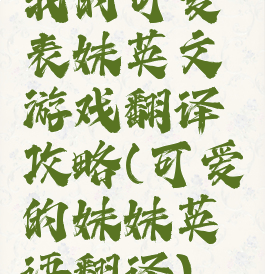 我的可爱
表妹英文
游戏翻译
攻略(可爱
的妹妹英
语翻译)